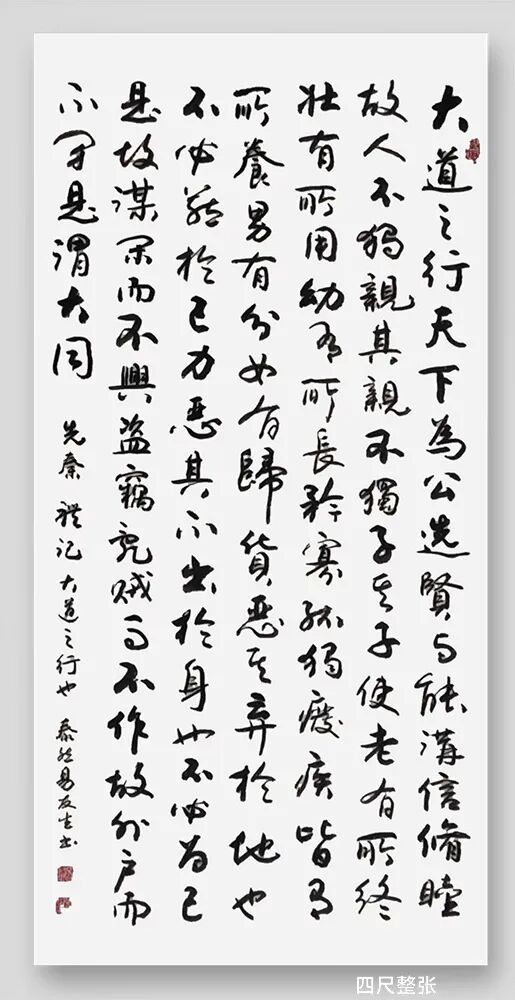 大道之行天下為公选賢与能講信脩睦
故人不独親其親不獨子其子使老有所终
壮有所用幼有所長矜寡孤独癈疾皆有
所養男有分女有歸貨惡其弃於地也
不必藏於己力惡其不出於身也不必为己
是故谋闭而不興盗竊乱贼而不作故外户而
不闭是谓大同
先秦 禮记 大道之行也 易友生书
四尺整张